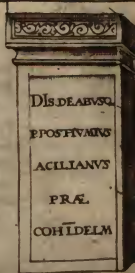 DIS. DEABVSQ.
P. POSTHVMIVS
ACILIANVS
PRÆ.
COH I DELM